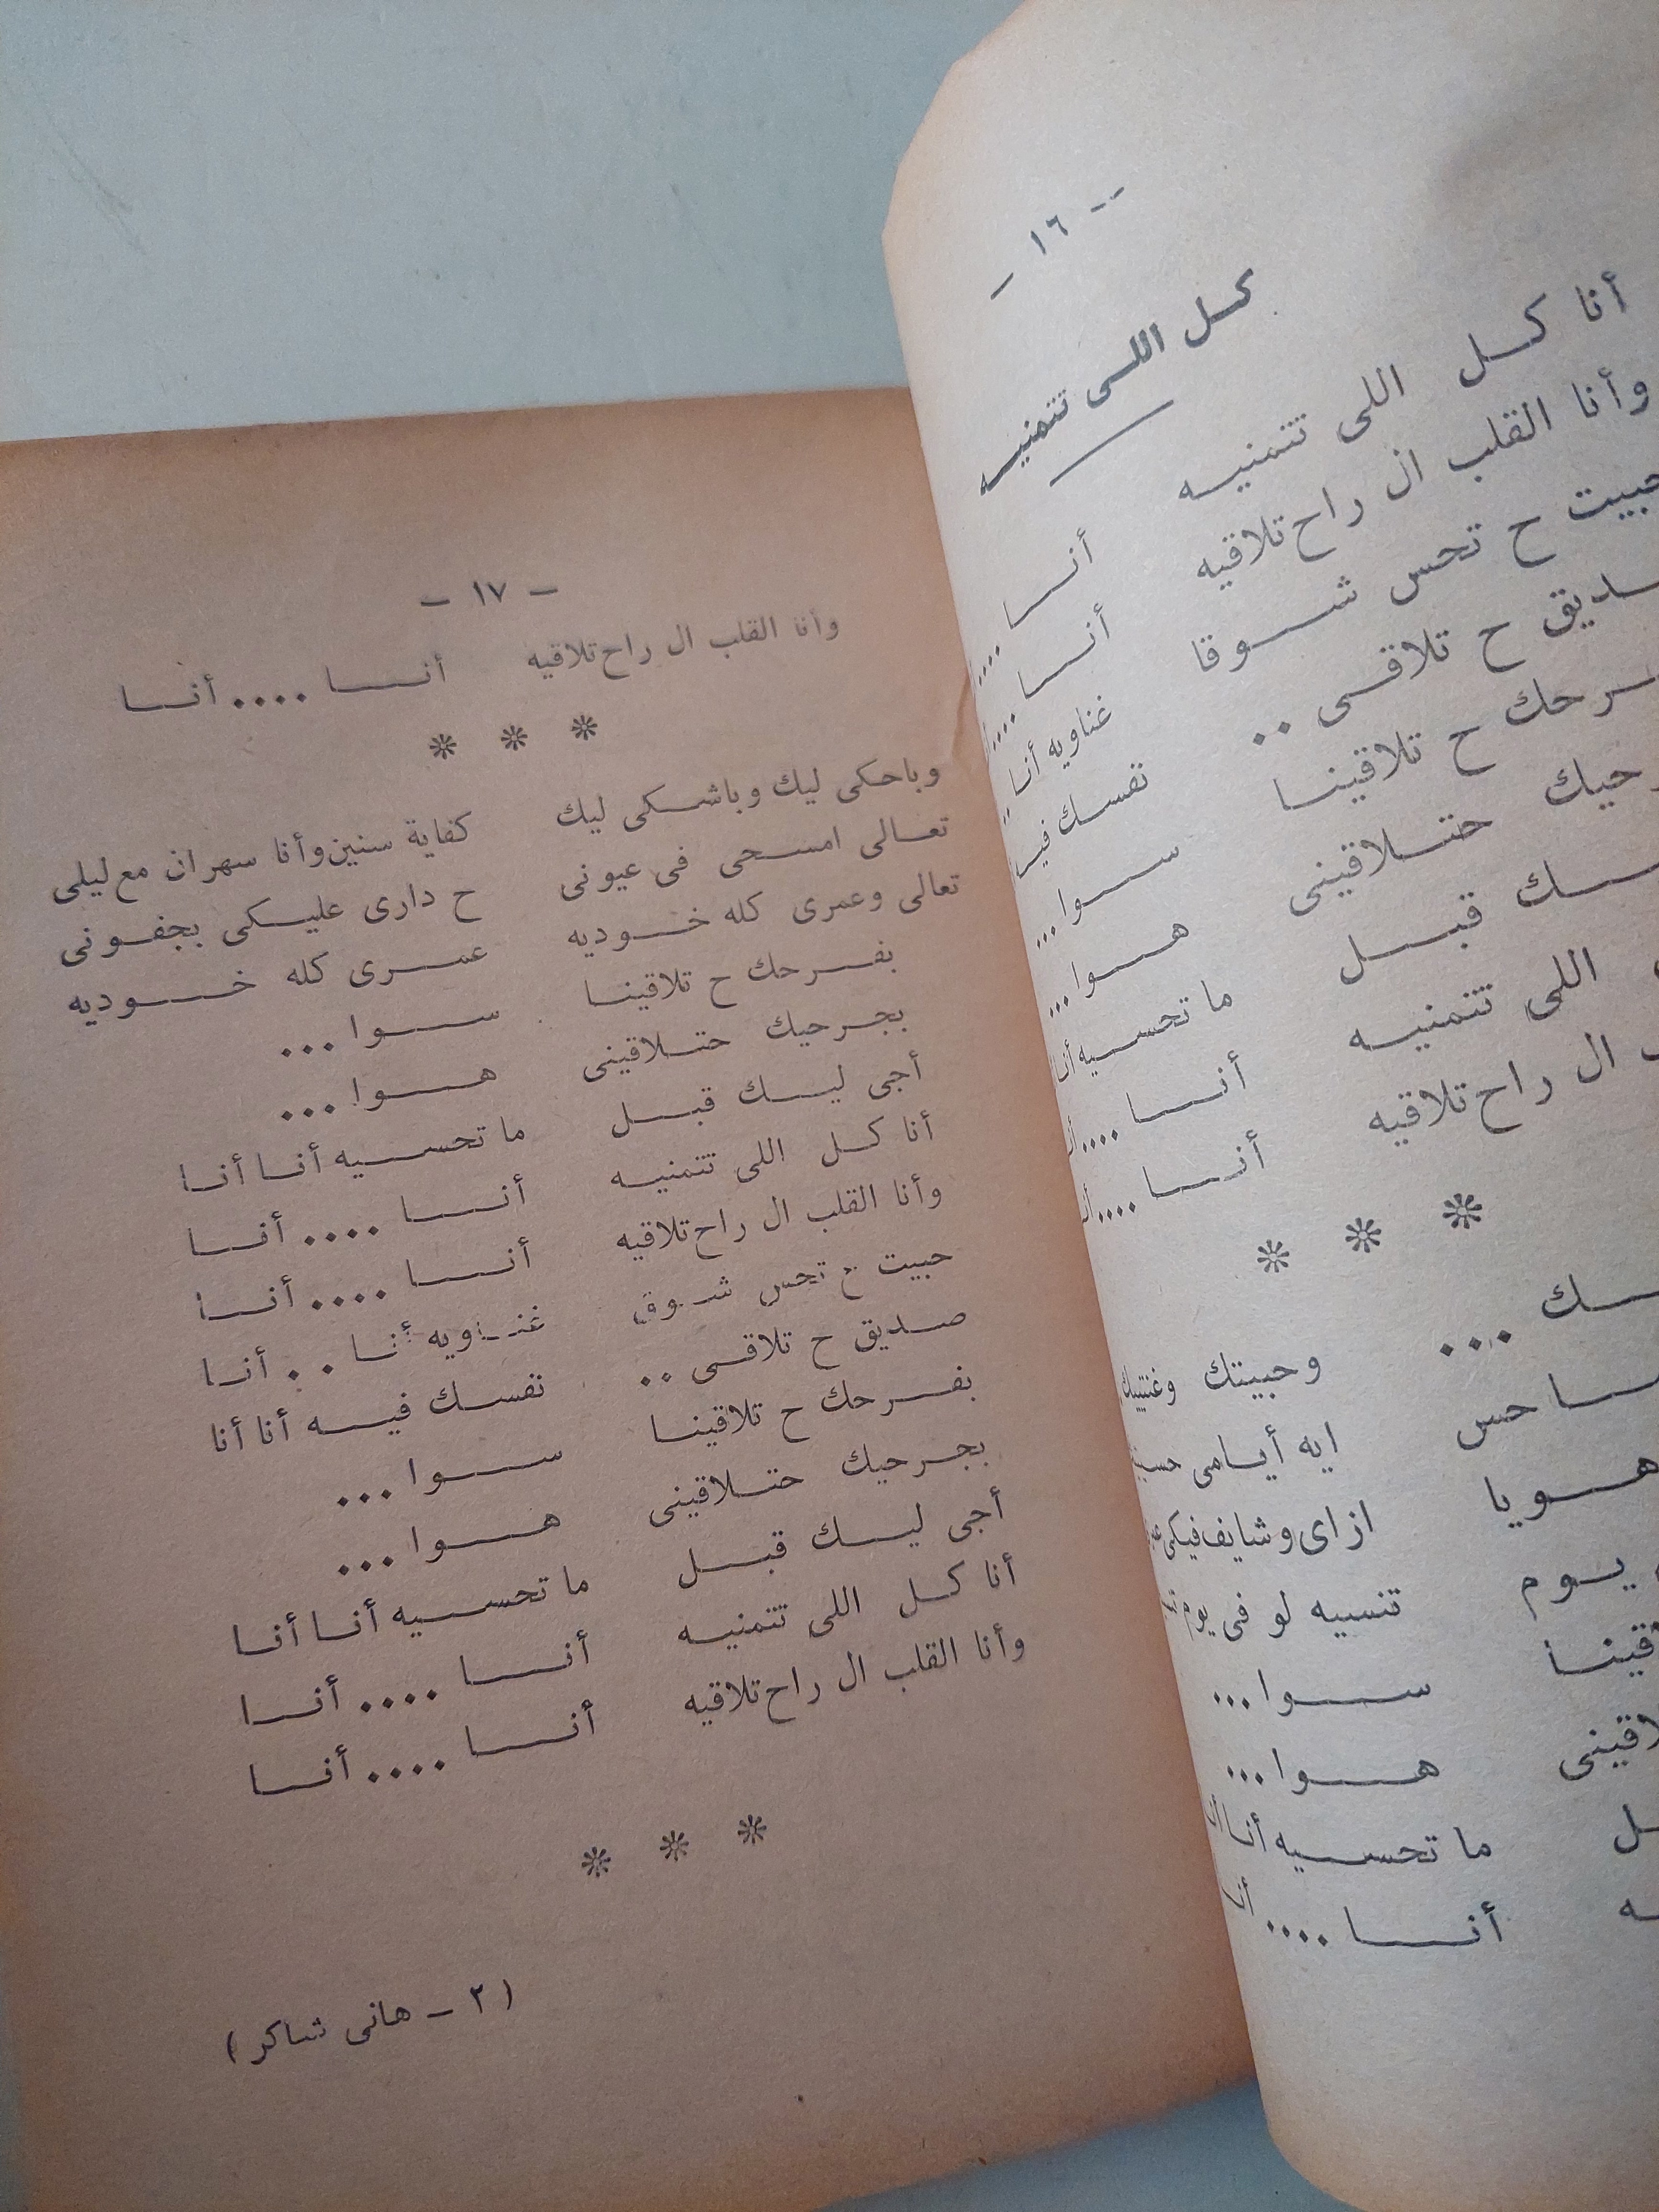 - ١٦ -
كل اللى تتمنيه
أنا كل اللى تتمنيه أنا ....
وأنا القلب ال راح تلاقيه أنا ....
حبيت ح تحس شوقا غناويه أنا ..
ح تلاقى .. نفسك
ح تلاقينا سوا ...
حتلاقينى هوا ...
قبل ما تحسيه
اللى تتمنيه أنا ....
ال راح تلاقيه أنا ....
* * *
... وحبيتك وغنتيلك
حس ايه أيامى
هويا ازاى وشايف فيكى
يوم تنسيه لو فى يوم
سوا ...
هوا ...
ما تحسيه أنا أنا
أنا .... أنا
- ١٧ -
وأنا القلب ال راح تلاقيه أنا .... أنا
* * *
وباحكى ليك وباشكى ليك كفاية سنين وأنا سهران مع ليلى
تعالى امسحى فى عيونى ح دارى عليكى بجفونى
تعالى وعمرى كله خوديه عمرى كله خوديه
بفرحك ح تلاقينا سوا ...
بجرحيك حتلاقينى هوا ...
أجى ليك قبل ما تحسيه أنا أنا
أنا كل اللى تتمنيه أنا .... أنا
وأنا القلب ال راح تلاقيه أنا .... أنا
حبيت ح تحس شوق غناويه أنا .. أنا
صديق ح تلاقى .. نفسك فيه أنا أنا
بفرحك ح تلاقينا سوا ...
بجرحيك حتلاقينى هوا ...
أجى ليك قبل ما تحسيه أنا أنا
أنا كل اللى تتمنيه أنا .... أنا
وأنا القلب ال راح تلاقيه أنا .... أنا
* * *
( ٢ - هانى شاكر )